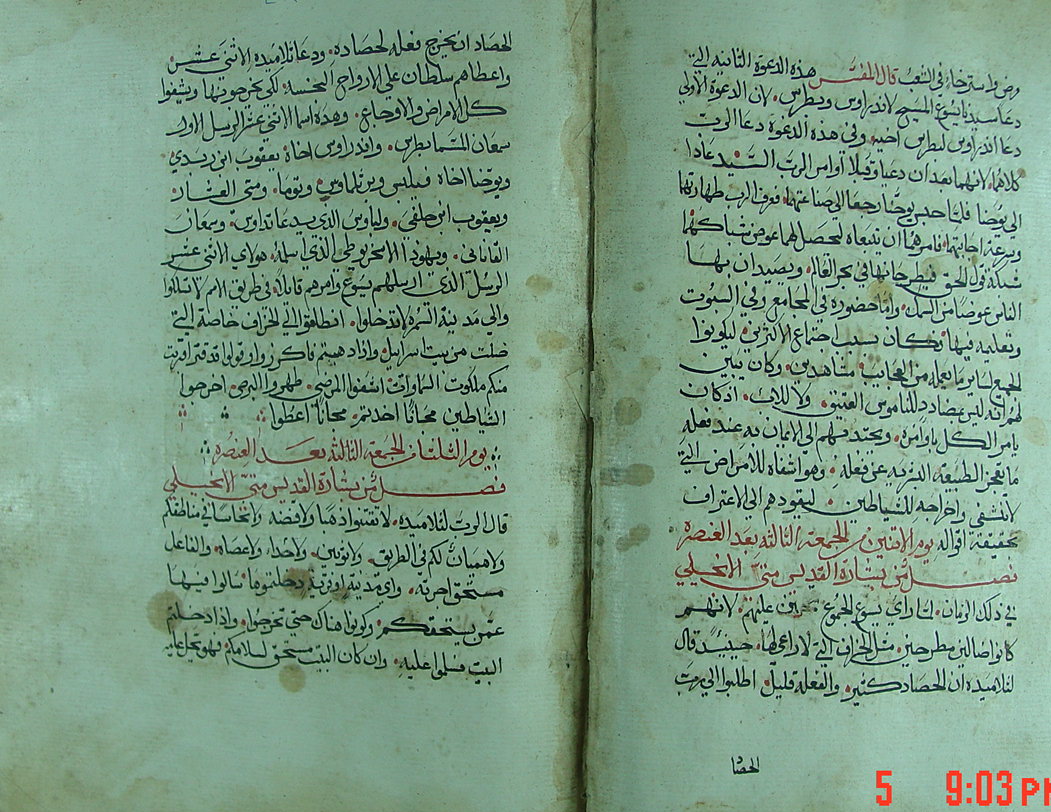 ومن واستوحاء في الشعب قال المفسر هذه الدعوة الثانية التي
دعا سيدنا يسوع المسيح لاندراوس وبطرس لان الدعوة الاولي
دعا اندراوس لبطرس اخيه وفي هذه الدعوة دعا الرب
كلاهما لانهما بعد ان دعيا وقبلا اوامر الرب السيد عادا
الي يوحنا فلما حبس يوحنا رجعا الي صناعتهما فعرف الرب طهارتها
وسرعة اجابتهما فامرهما ان يتبعاه لتحصل لهما عوض شباكهما
شبكة قول الحق فيطرحانها في بحر العالم ويصيدان بها
الناس عوضا من السمك واما حضوره في المجامع وفي السبوت
وتعليمه فيها فكان بسبب اجتماع الاكثرين ليكونوا
الجمع لساير ما يعمله من العجايب مشاهدين وكان يبين
لهم انه ليس بمضادد للناموس العتيق ولا للاب اذ كان
يامر الكل باوامره ويجتذبهم الي الايمان به عند فعله
ما تعجز الطبيعة البشريه عن فعله وهو اشفاه للامراض التي
لا تشفي واخراجه للشياطين ليقودهم الي الاعتراف
بحقيقة اقواله يوم الاتنين من الجمعة الثالثه بعد العنصره
فصل من بشارة القديس متي الانجيلي
في ذلك الزمان لما راي يسوع الجموع تحنن عليهم لانهم
كانوا ضالين مطرحين مثل الخراف التي لا راعي لها حينيذ قال
لتلاميذه ان الحصاد كثير والفعله قليل اطلبوا الي رب
الحصاد
الحصاد ان يخرج فعله لحصاده ودعا تلاميذه الاثني عشر
واعطاهم سلطان علي الارواح النجسه لكي يخرجونها ويشفوا
كل الامراض والاوجاع وهذه اسما الاثني عشر الرسل الاول
سمعان المسما بطرس واندراوس اخاه يعقوب ابن زبدي
ويوحنا اخاه فيلبس وبرتلماوس وتوما ومتي العشار
ويعقوب ابن حلفي ولباوس الذي يدعا تداوس وسمعان
القاناني ويهوذا الاسخريوطي الذي اسلمه هولاي الاثني عشر
الرسل الذي ارسلهم يسوع وامرهم قايلا في طريق الامم لا تسلكوا
والي مدينة السمره لا تدخلوا انطلقوا الي الخراف خاصة التي
ضلت من بيت اسراييل واذا ذهبتم فاكرزوا وقولوا قد قربت
منكم ملكوت السماوات اشفوا المرضي طهروا البرص اخرجوا
الشياطين مجانا اخذتم مجانا اعطوا
يوم الثلثا من الجمعة الثالثه بعد العنصره
فصل من بشارة القديس متي الانجيلي
قال الرب لتلاميذه لا تقتنوا ذهبا ولا فضه ولا نحاسا في مناطقكم
ولا هميان لكم في الطريق ولا ثوبين ولا حذا ولا عصاه والفاعل
مستحق اجرته واي مدينة او قرية دخلتموها سالوا فيها
عمن يستحقكم وكونوا هناك حتي تخرجوا واذا دخلتم
البيت فسلموا عليه وان كان البيت مستحق لسلامكم فهو يحل عليه
5 9:03 PM